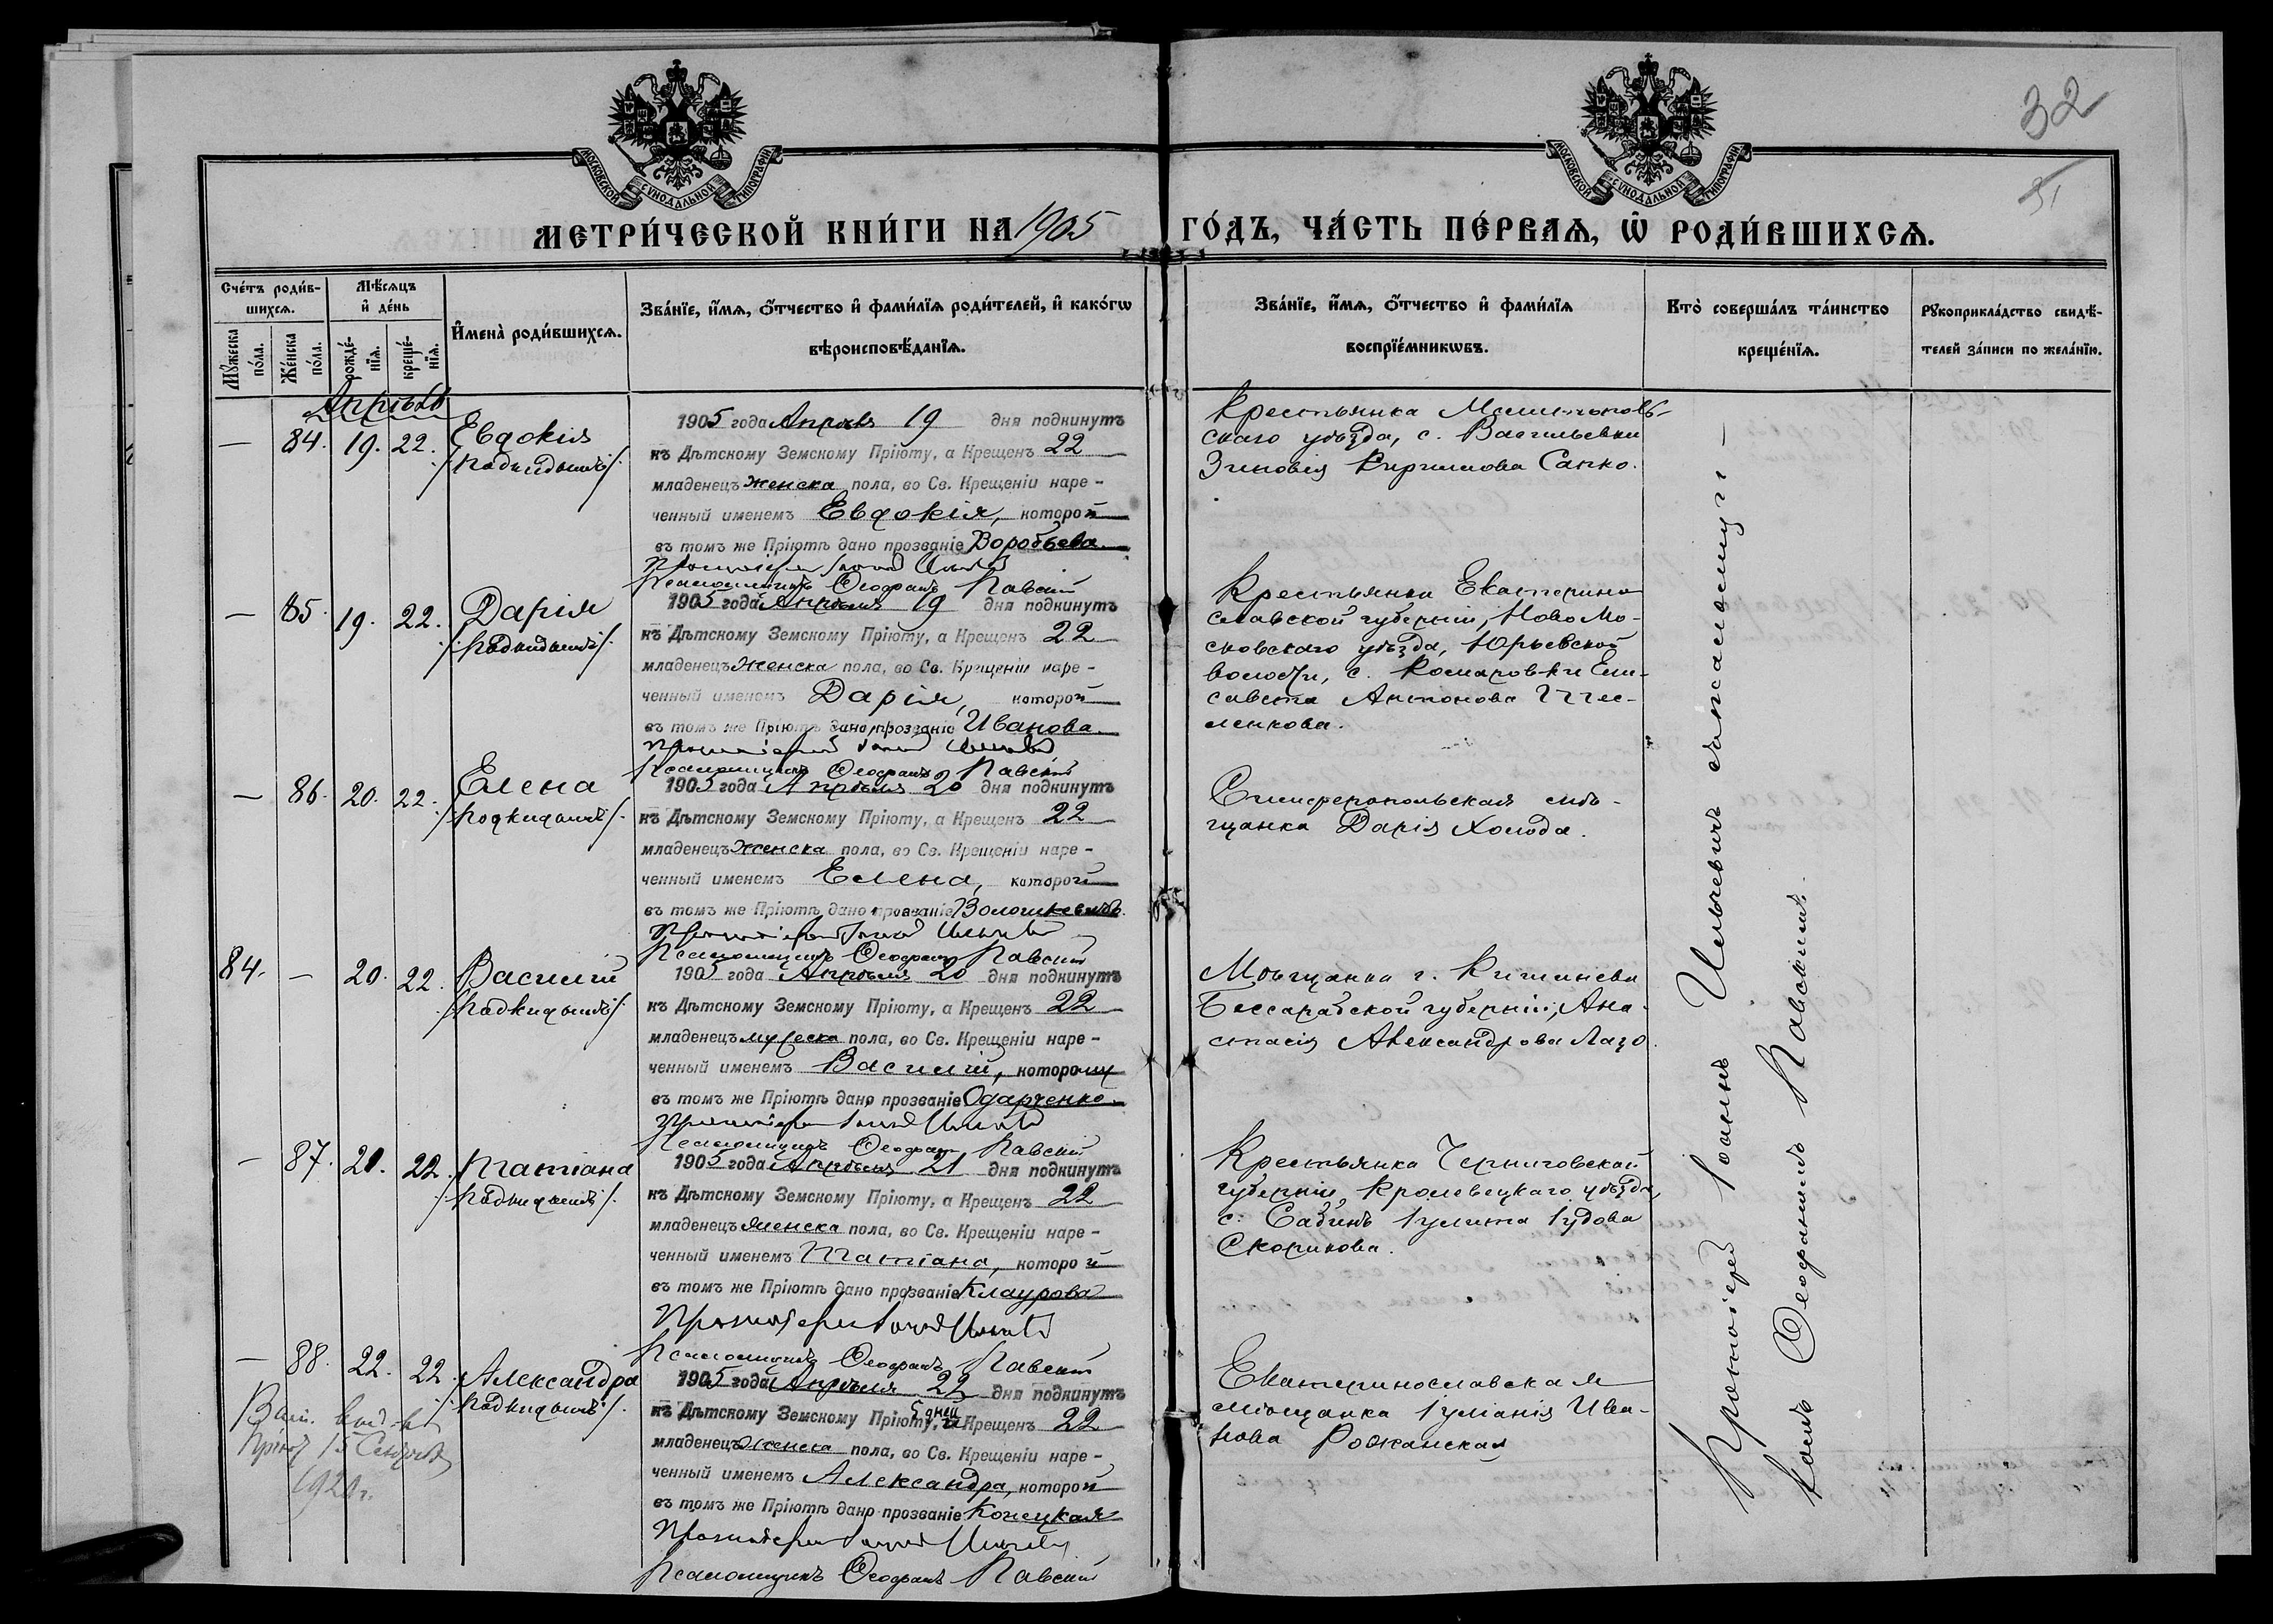 МОСКОВСКОЙ СѴНОДАЛЬНОЙ ТИПОГРАФІИ
МОСКОВСКОЙ СѴНОДАЛЬНОЙ ТИПОГРАФІИ
32
31
МЕТРИ́ЧЕСКОЙ КНИ́ГИ НА 1905 ГО́ДЪ, ЧА́СТЬ ПЕ́РВАѦ, Ѡ҆ РОДИ́ВШИХСѦ.
Сче́тъ роди́в-
шихсѧ.
Мꙋ́жеска по́ла.
Же́нска по́ла.
Мѣ́сѧцъ и҆ де́нь
рожде́-нїѧ.
креще́-нїѧ.
И҆мена̀ роди́вшихсѧ.
Зва́нїе, и҆́мѧ, ѻ҆́тчество и҆ фами́лїѧ роди́телей, и҆ како́гѡ
вѣроисповѣ́данїѧ.
Зва́нїе, и҆́мѧ, ѻ҆́тчество и҆ фами́лїѧ
воспрїе́мникѡвъ.
Кто̀ соверша́лъ та́инство
креще́нїѧ.
Рꙋкоприкла́дство свидѣ́-
телей за́писи по жела́нїю.
Апрѣль
— 84. 19. 22. Евдокія
/Подкидышъ/.
1905 года Апрѣля 19 дня подкинутъ
къ Дѣтскому Земскому Пріюту, а Крещенъ 22
младенецъ женска пола, во Св. Крещеніи наре-
ченный именемъ Евдокія, которой
въ томъ же Пріютѣ дано прозваніе Воробьева.
Протоіерей Іоаннъ
Псаломщикъ Ѳеофанъ Павскій
Крестьянка Мелитополь-
скаго уѣзда, с. Васильевки
Зиновія Кириллова Санко.
— 85. 19. 22. Дарія
/Подкидышъ/.
1905 года Апрѣля 19 дня подкинутъ
къ Дѣтскому Земскому Пріюту, а Крещенъ 22
младенецъ Женска пола, во Св. Крещеніи наре-
ченный именемъ Дарія, которой
въ томъ же Пріютѣ дано прозваніе Иванова.
Протоіерей Іоаннъ
Псаломщикъ Ѳеофанъ Павскій
Крестьянка Екатерино
славской губерніи, Ново Мо-
сковскаго уѣзда, Юрьевской
волости, с. Комаровки Ели-
савета Антонова
ленкова.
— 86. 20. 22. Елена
/Подкидышъ/.
1905 года Апрѣля 20 дня подкинутъ
къ Дѣтскому Земскому Пріюту, а Крещенъ 22
младенецъ Женска пола, во Св. Крещеніи наре-
ченный именемъ Елена, которой
въ томъ же Пріютѣ дано прозваніе
Протоіерей Іоаннъ
Псаломщикъ Ѳеофанъ Павскій
Симферопольская мѣ-
щанка Дарія Холода.
84. — 20. 22. Василій
/Подкидышъ/.
1905 года Апрѣля 20 дня подкинутъ
къ Дѣтскому Земскому Пріюту, а Крещенъ 22
младенецъ мужеска пола, во Св. Крещеніи наре-
ченный именемъ Василій, которому
въ томъ же Пріютѣ дано прозваніе Одарченко.
Протоіерей Іоаннъ
Псаломщикъ Ѳеофанъ Павскій
Мѣщанка г. Кишинева
Бессарабской губерніи, Ана-
стасія Александрова Лазо.
— 87. 21. 22. Татіана
/Подкидышъ/.
1905 года Апрѣля 21 дня подкинутъ
къ Дѣтскому Земскому Пріюту, а Крещенъ 22
младенецъ женска пола, во Св. Крещеніи наре-
ченный именемъ Татіана, которой
въ томъ же Пріютѣ дано прозваніе Клаурова
Протоіерей Іоаннъ
Псаломщикъ Ѳеофанъ Павскій
Крестьянка Черниговской
губерніи, Кролевецкаго уѣзда,
с. Іулита Іудова
Скорикова.
— 88. 22. 22. Александра
/Подкидышъ/.
1905 года Апрѣля 22 дня подкинутъ
къ Дѣтскому Земскому Пріюту, а Крещенъ 22
младенецъ женска пола, во Св. Крещеніи наре-
ченный именемъ Александра, которой
въ томъ же Пріютѣ дано прозваніе Конецкая
Протоіерей Іоаннъ
Псаломщикъ Ѳеофанъ Павскій
Екатеринославская
мѣщанка Іуліанія Ива-
нова
15
Протоіерей Іоаннъ съ псаломщи-
комъ Ѳеофаномъ Павскимъ.